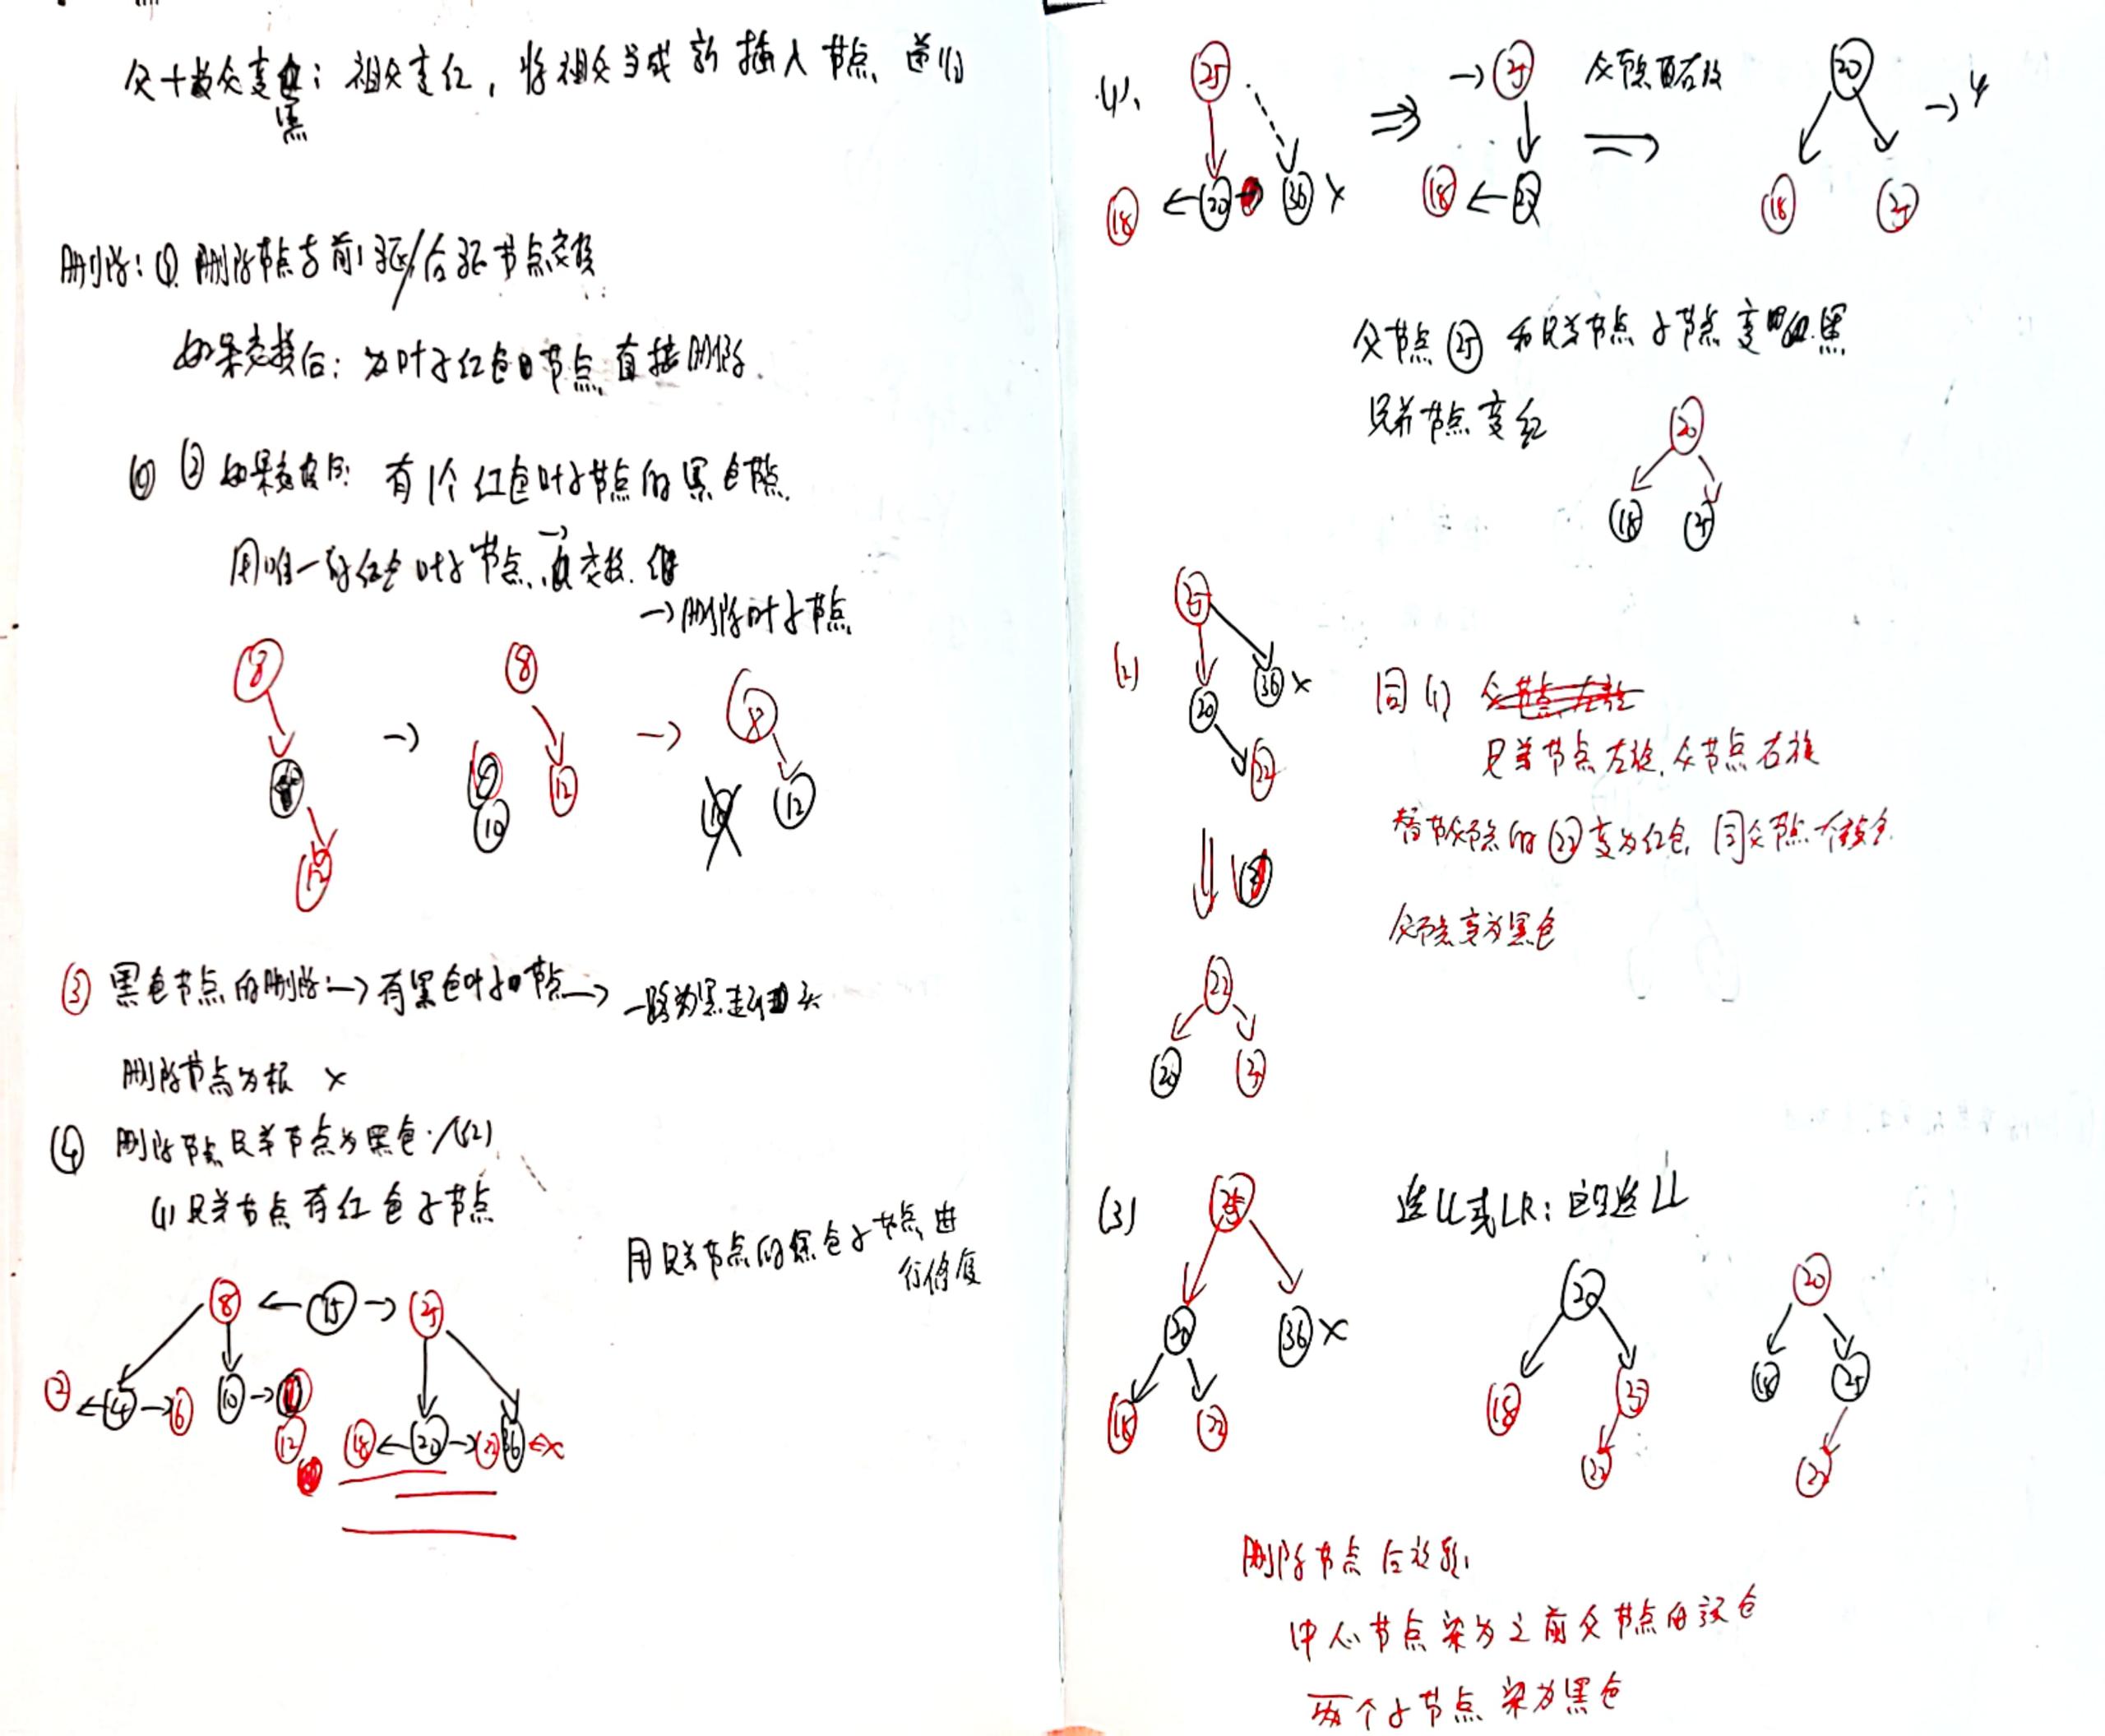 父+叔父变黑; 祖父变红, 将祖父当成新插入节点 递归
删除: ① 删除节点与前驱/后驱节点交换
如果交换后: 为叶子红色节点, 直接删除.
② 如果交换后: 有1个红色叶子节点的黑色节点.
用唯一的红色叶子节点, 交换.
→ 删除叶子节点
8 → 8 → 8
12 12
10 10
12
③ 黑色节点的删除: → 有黑色叶子节点 →
删除节点为根 ×
④ 删除节点兄弟节点为黑色.
(1) 兄弟节点有红色子节点
用兄弟节点的红色子节点进
行修复
8 ← 15 → 25
2 ← 4 → 6 10 →
12 18 ← 20 → 22 36 ← ×
(1). 25 ⇒ → 25 父节点右旋 ⇒ 20 →
18 ← 20 36 × 18 ← 20 18 25
父节点 25 和兄弟节点子节点变黑
兄弟节点变红
20
18 25
25
(2) 36 × 同(1)
20
兄弟节点左旋, 父节点右旋
22
替节父节点的 22 变为红色, 同父节点
父节点变为黑色
22
20 25
(3) 25 选LL或LR: 选LL
20 20
20 36 ×
18 25 18 25
18 22
22 22
删除节点后
中心节点染为之前父节点的颜色
两个子节点染为黑色